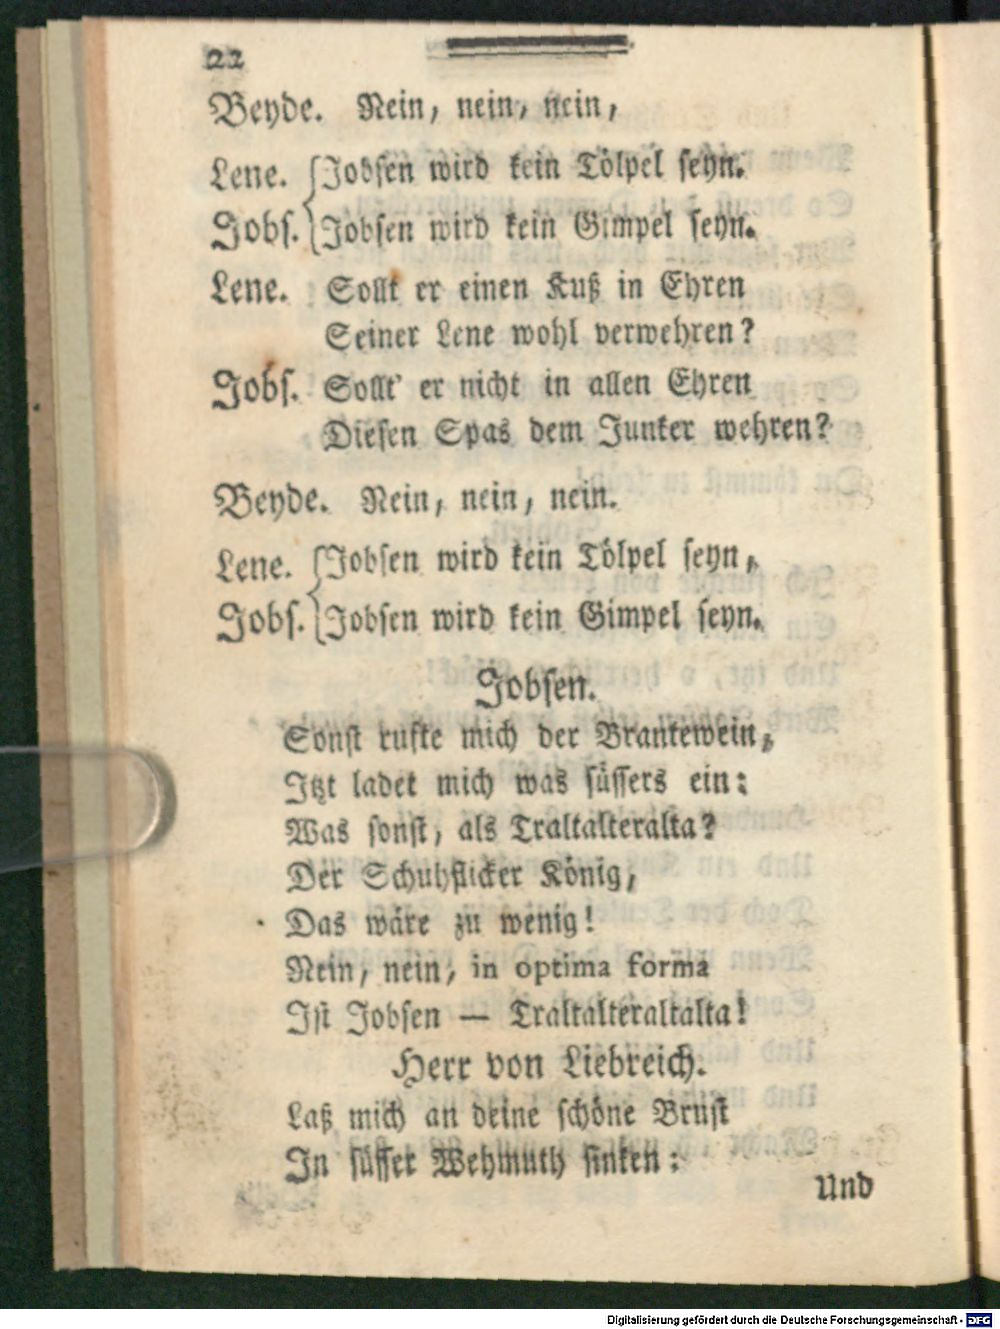 22
Beyde. Nein, nein, nein,
Lene. Jobsen wird kein Tölpel seyn.
Jobs. Jobsen wird kein Gimpel seyn.
Lene. Sollt er einen Kuß in Ehren
Seiner Lene wohl verwehren?
Jobs. Sollt' er nicht in allen Ehren
Diesen Spas dem Junker wehren?
Beyde. Nein, nein, nein.
Lene. Jobsen wird kein Tölpel seyn,
Jobs. Jobsen wird kein Gimpel seyn.
Jobsen.
Sonst rufte mich der Brantewein,
Itzt ladet mich was süssers ein:
Was sonst, als Traltalteralta?
Der Schuhflicker König,
Das wäre zu wenig!
Nein, nein, in optima forma
Ist Jobsen — Traltalteraltalta!
Herr von Liebreich.
Laß mich an deine schöne Brust
In süsser Wehmuth sinken:
Und
Digitalisierung gefördert durch die Deutsche Forschungsgemeinschaft - DFG